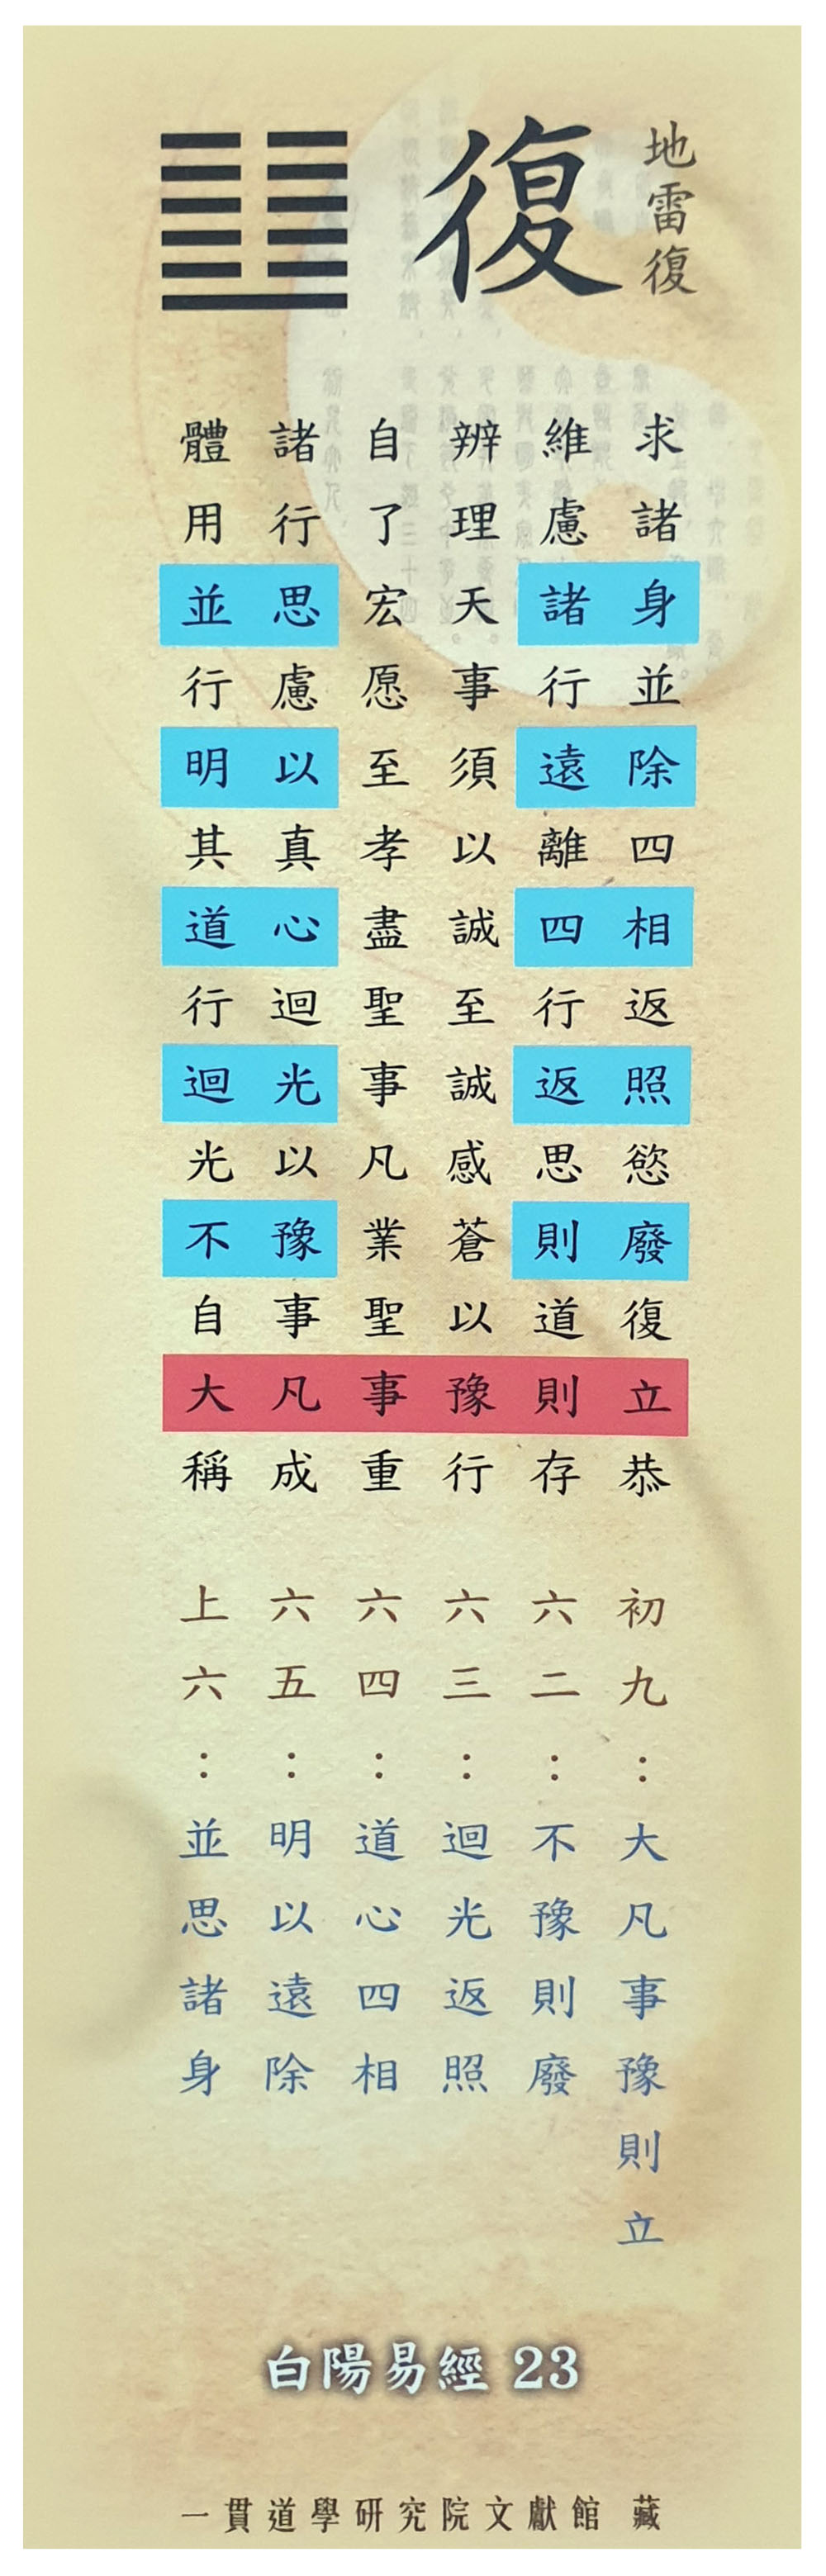 地雷復
復
求諸身並除四相返照慾廢復立恭
維慮諸行遠離四行返思則道則存
辨理天事須以誠至誠感蒼以豫行
自了宏愿至孝盡聖事凡業聖事重
諸行思慮以真心迴光以豫事凡成
體用並行明其道行迴光不自大稱
初九：大凡事豫則立
六二：不豫則廢
六三：迴光返照
六四：道心四相
六五：明以遠除
上六：並思諸身
白陽易經 23
一貫道學研究院文獻館 藏